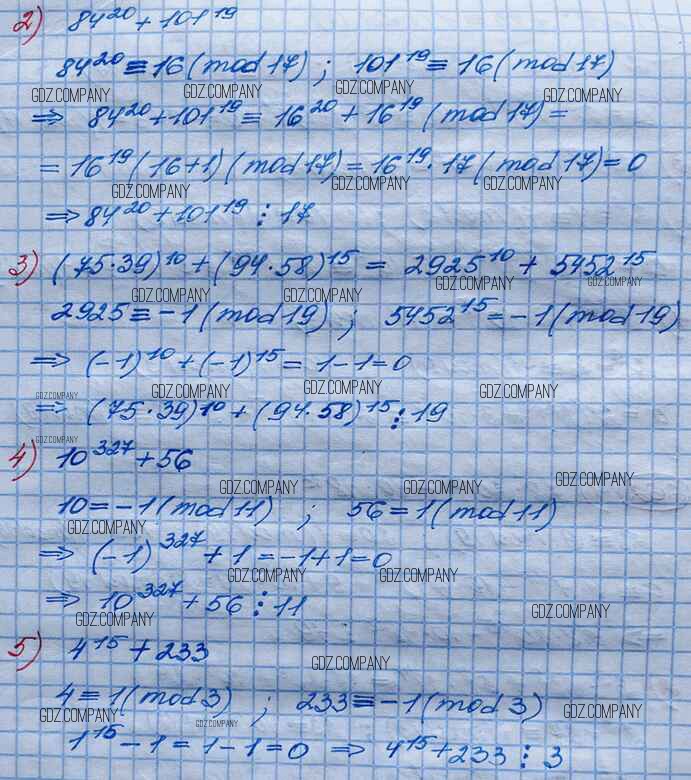 2) 84²⁰ + 101¹⁹
84²⁰ ≡ 16 (mod 17) ; 101¹⁹ ≡ 16 (mod 17)
GDZ.COMPANY GDZ.COMPANY GDZ.COMPANY GDZ.COMPANY
⇒ 84²⁰ + 101¹⁹ ≡ 16²⁰ + 16¹⁹ (mod 17) =
= 16¹⁹ (16 + 1) (mod 17) = 16¹⁹ · 17 (mod 17) = 0
GDZ.COMPANY GDZ.COMPANY GDZ.COMPANY
⇒ 84²⁰ + 101¹⁹ ⋮ 17
3) (75·39)¹⁰ + (94·58)¹⁵ = 2925¹⁰ + 5452¹⁵
GDZ.COMPANY GDZ.COMPANY GDZ.COMPANY GDZ.COMPANY
2925 ≡ -1 (mod 19) ; 5452¹⁵ = -1 (mod 19)
⇒ (-1)¹⁰ + (-1)¹⁵ = 1 - 1 = 0
GDZ.COMPANY GDZ.COMPANY GDZ.COMPANY GDZ.COMPANY
⇒ (75·39)¹⁰ + (94·58)¹⁵ ⋮ 19
GDZ.COMPANY
4) 10³²⁷ + 56
GDZ.COMPANY GDZ.COMPANY GDZ.COMPANY
10 = -1 (mod 11) ; 56 = 1 (mod 11)
GDZ.COMPANY
⇒ (-1)³²⁷ + 1 = -1 + 1 = 0
GDZ.COMPANY GDZ.COMPANY
⇒ 10³²⁷ + 56 ⋮ 11
GDZ.COMPANY GDZ.COMPANY
5) 4¹⁵ + 233
GDZ.COMPANY
4 ≡ 1 (mod 3) ; 233 ≡ -1 (mod 3)
GDZ.COMPANY GDZ.COMPANY GDZ.COMPANY
1¹⁵ - 1 = 1 - 1 = 0 ⇒ 4¹⁵ + 233 ⋮ 3